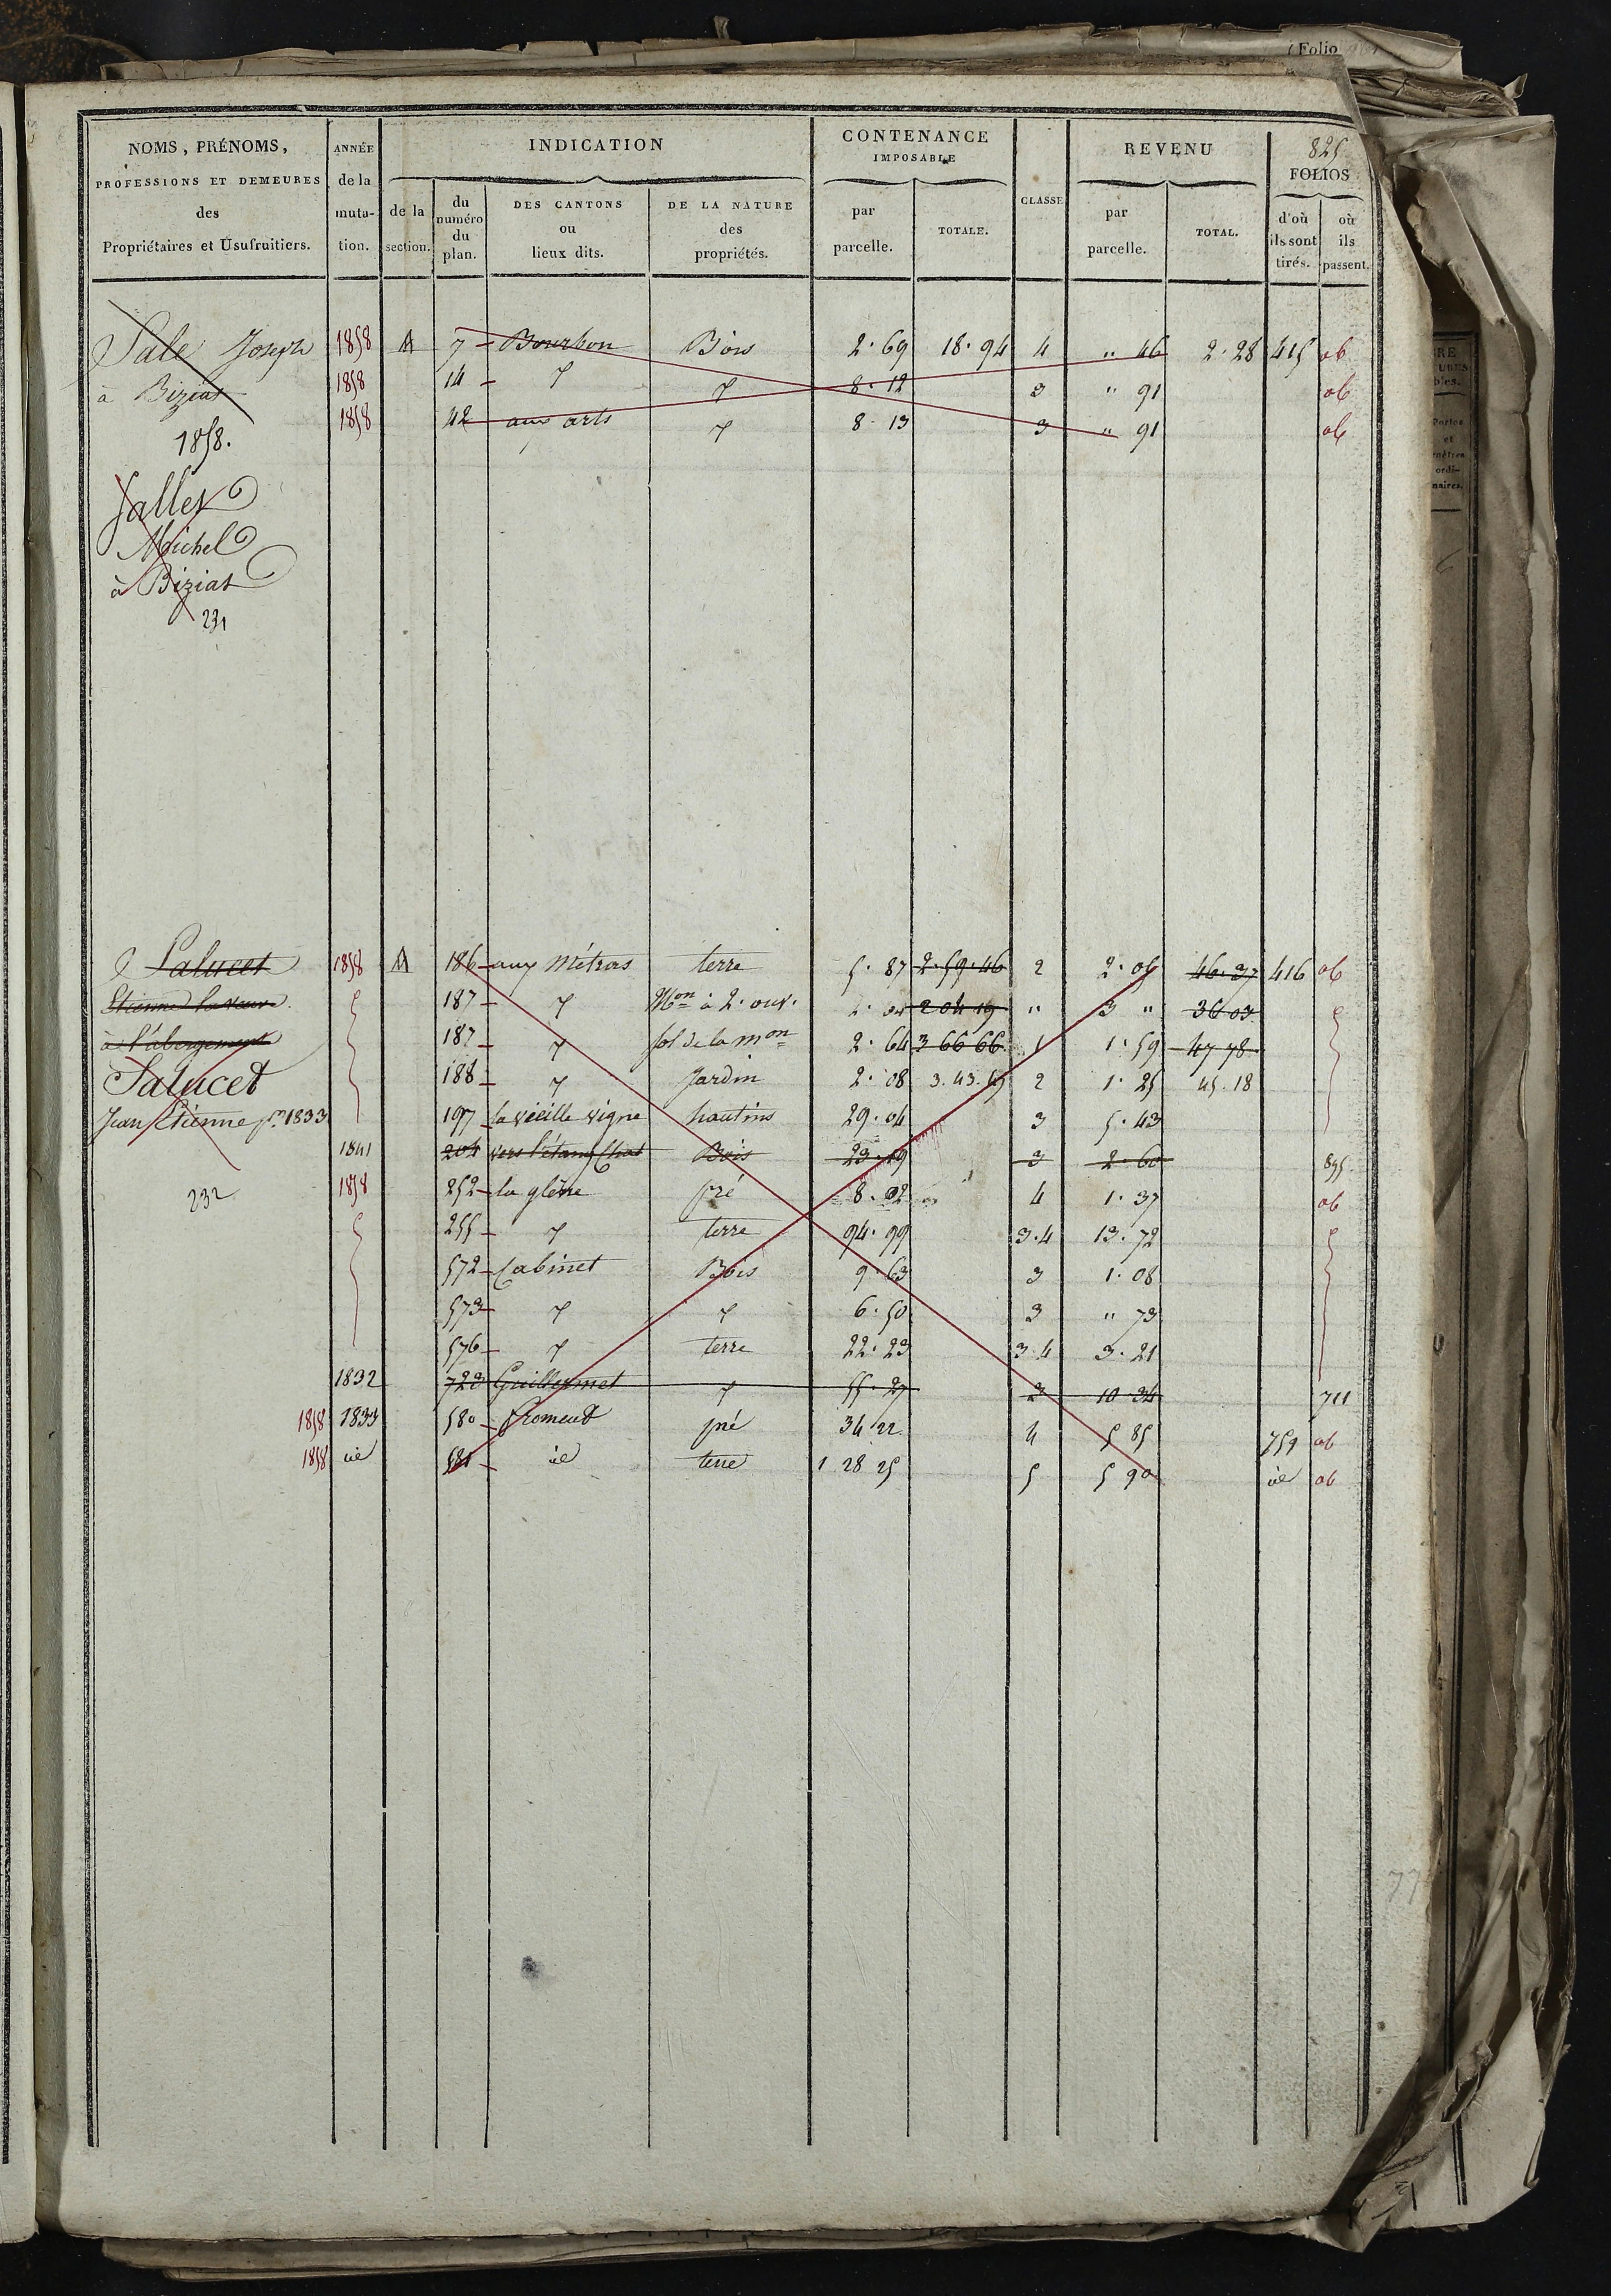 Folio
825
NOMS, PRÉNOMS, PROFESSIONS ET DEMEURES des Propriétaires et Usufruitiers.
ANNÉE de la muta- tion.
INDICATION
de la section.
du numéro du plan.
DES CANTONS ou lieux dits.
DE LA NATURE des propriétés.
CONTENANCE IMPOSABLE
par parcelle.
TOTALE.
CLASSE
REVENU
par parcelle.
TOTAL.
FOLIOS
d'où ils sont tirés.
où ils passent.
Sale Joseph 1858 A 7 - Bourbon Bois 2. 69 18. 94 4 " 46 2. 28 415 ab
à Biziat 1858 14 - 7 7 8. 12 3 " 91 ab
1858 42 aux arts 7 8. 13 3 " 91 ab
1858.
Salles
Michel
à Biziat
231
Salucet 1858 A 186 - aux Métras terre 5. 87 2. 59. 46 2 2. 05 46. 37 416 ab
Etienne la veuve 187 - 7 Mon à 2. ouv. 2 04 19 " 3 " 36 03
à l'abergement 187 - 7 sol de la mon 2. 64 3 66 66 1 1. 59 47 78
Salucet 188 - 7 Jardin 2. 08 3. 43. 45 2 1. 25 45. 18
Jean Etienne pr 1833 197 la vieille vigne hautins 29. 04 3 5. 43
1841 204 vers l'étang Chat Bois 23. 19 3 2. 60 895
232
1858 252 - la glène pré 8. 02 4 1. 37 ab
255 - 7 terre 94. 99 3. 4 13. 72
572 - Cabinet Bois 9. 63 3 1. 08
573 - 7 7 6. 50 3 " 73
576 - 7 terre 22. 23 3. 4 3. 21
1832 723 Guillermet 7 55. 27 3 10 24 711
1858 1833 580 - Froment pré 34. 22 4 5 85 759 ab
1858 id 581 - id terre 1 28 25 5 5 90 id ab